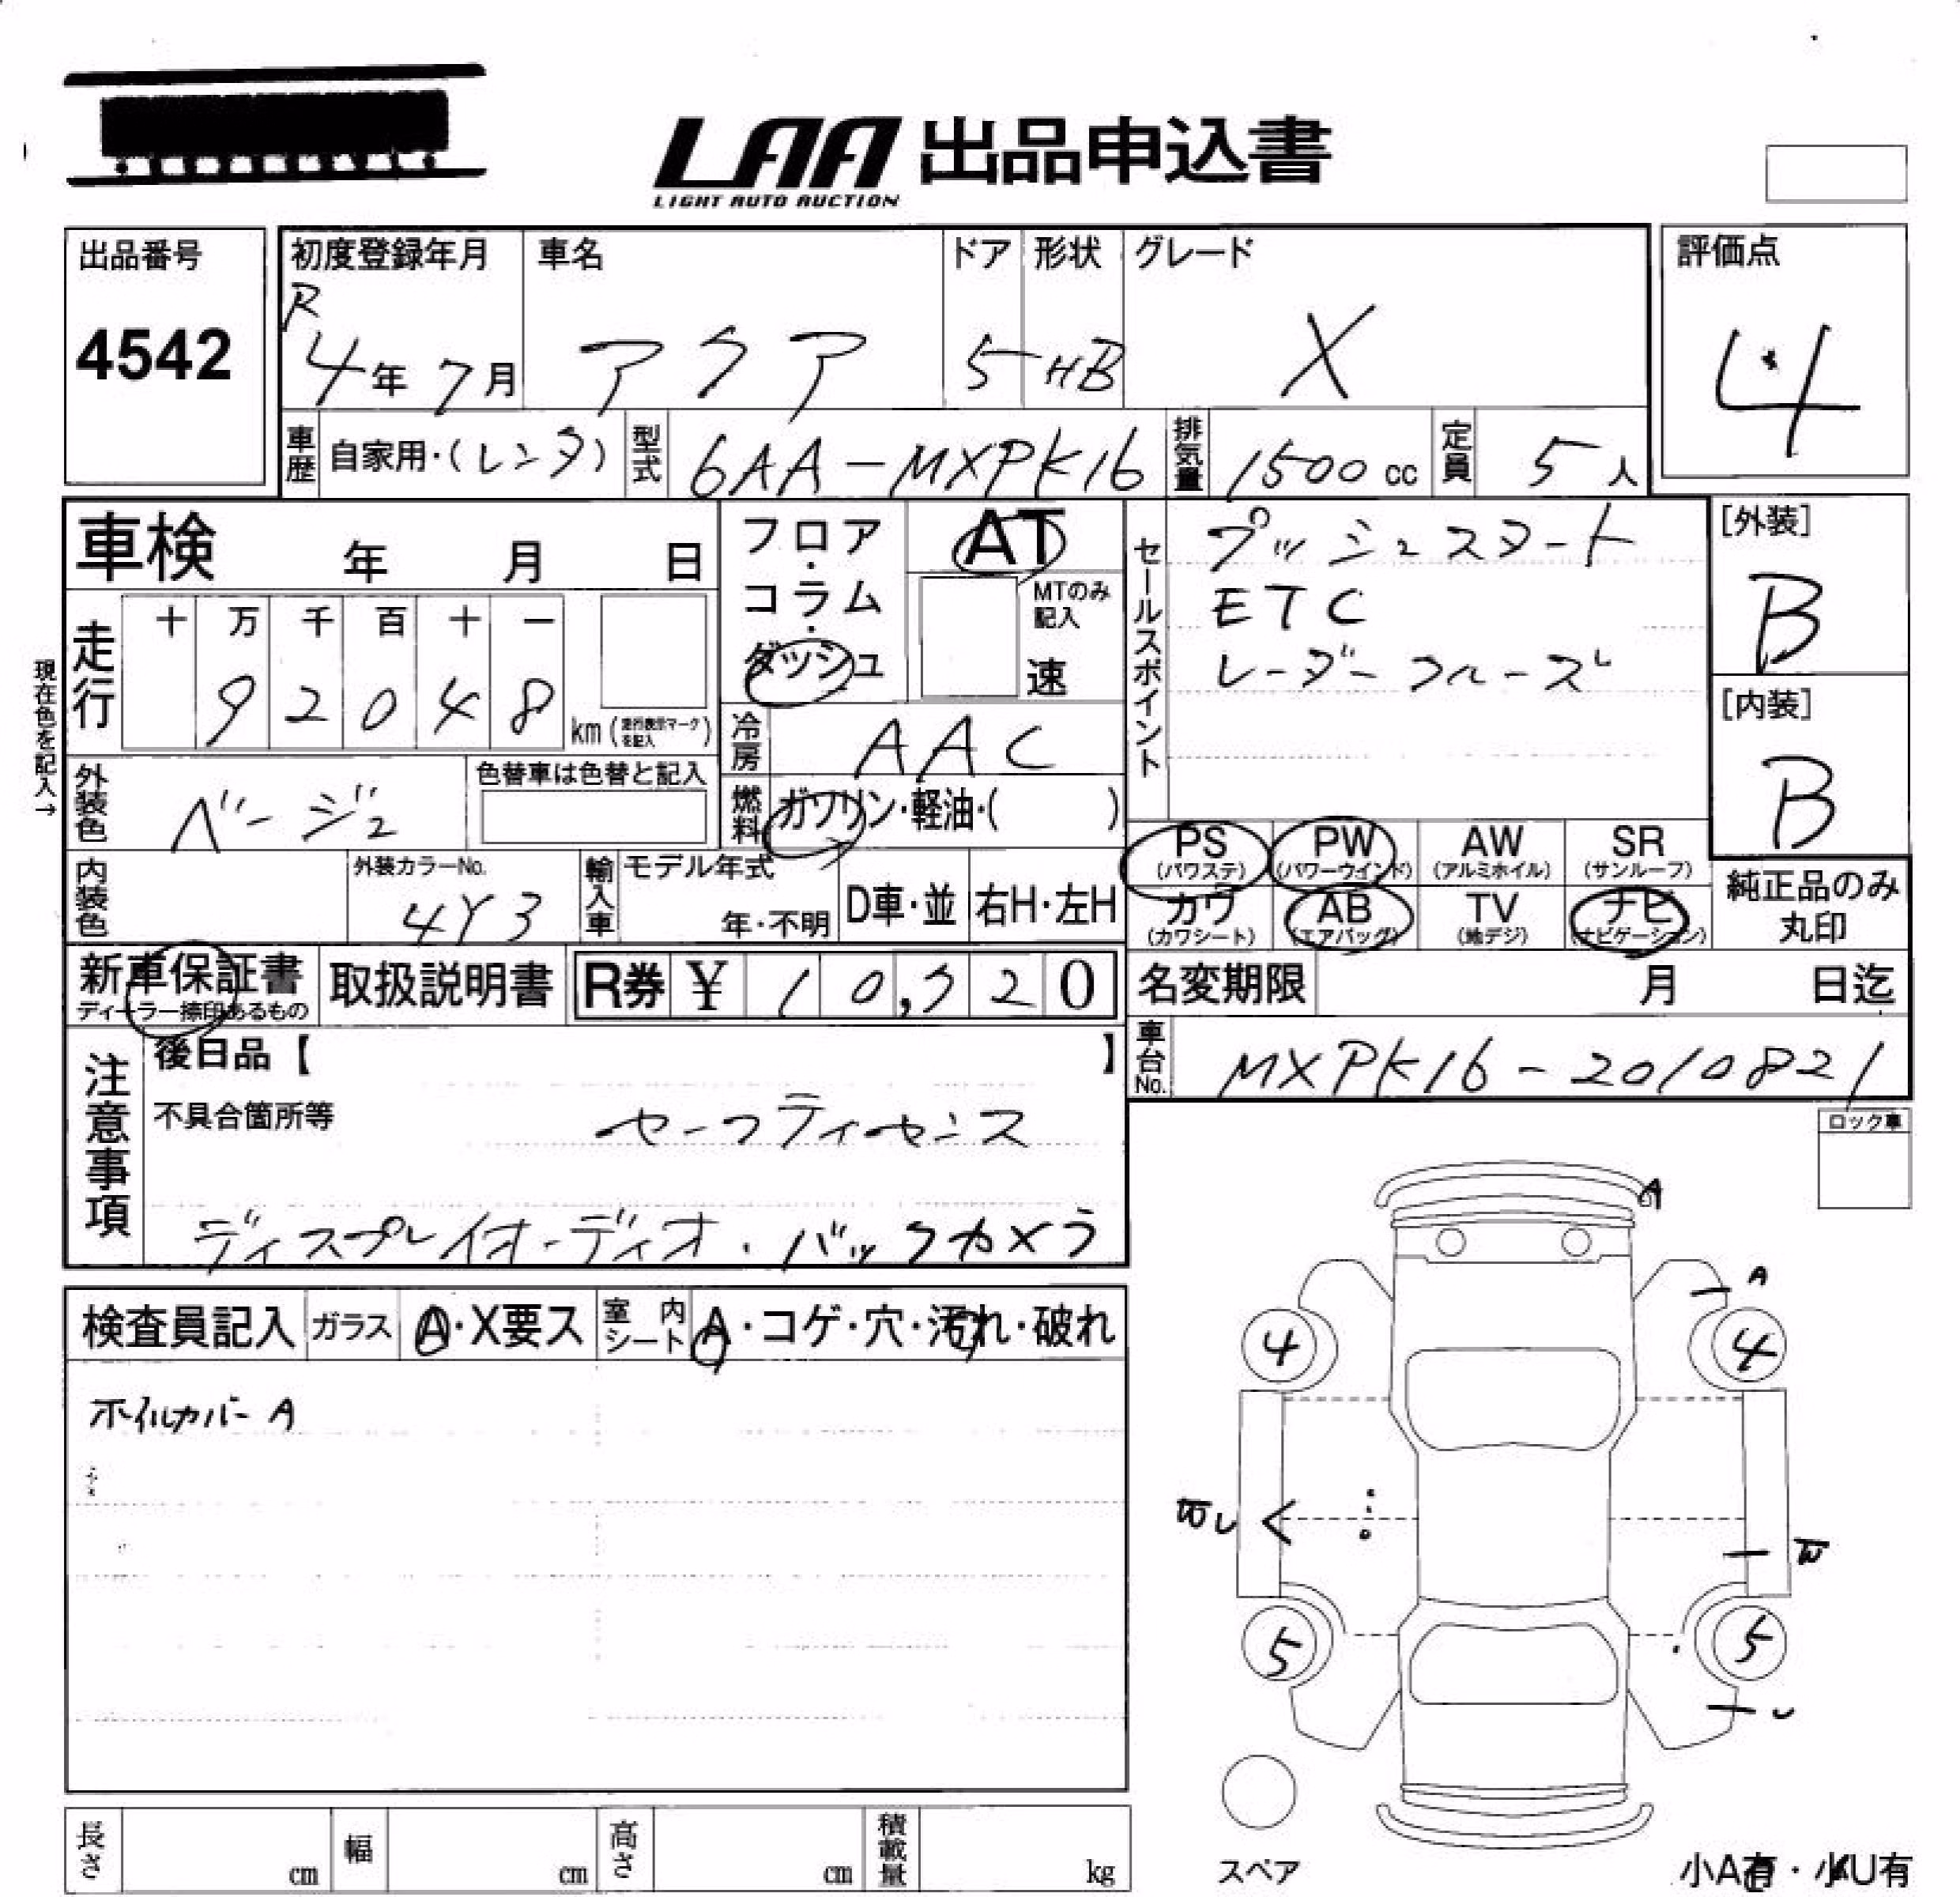 LAA 出品申込書
LIGHT AUTO AUCTION
出品番号
4542
初度登録年月
R
4年 7月
車名
アクア
ドア
5
形状
HB
グレード
X
評価点
4
車歴
自家用・(レンタ)
型式
6AA-MXPK16
排気量
1500 cc
定員
5人
車検 年 月 日
フロア・コラム・ダッシュ
AT
MTのみ記入
速
現在色を記入→
走行
十 万 千 百 十 一
9 2 0 4 8
km (走行表示マークを記入)
冷房
AAC
外装色
ベージュ
色替車は色替と記入
燃料
ガソリン・軽油・( )
内装色
外装カラーNo.
4Y3
輸入車
モデル年式
年・不明
D車・並
右H・左H
セールスポイント
プッシュスタート
ETC
レーダークルーズ
[外装]
B
[内装]
B
PS (パワステ)
PW (パワーウインド)
AW (アルミホイル)
SR (サンルーフ)
カワ (カワシート)
AB (エアバッグ)
TV (地デジ)
ナビ (ナビゲーション)
純正品のみ丸印
新車保証書
ディーラー捺印あるもの
取扱説明書
R券 ¥ 10,320
名変期限 月 日迄
車台No.
MXPK16-2010821
注意事項
後日品【 】
不具合箇所等
セーフティセンス
ディスプレイオーディオ・バックカメラ
ロック車
検査員記入
ガラス
A・X要ス
室内シート
A・コゲ・穴・汚れ・破れ
ホイルカバーA
A
A
4
4
5
5
スペア
小A有・小U有
長さ cm
幅 cm
高さ cm
積載量 kg